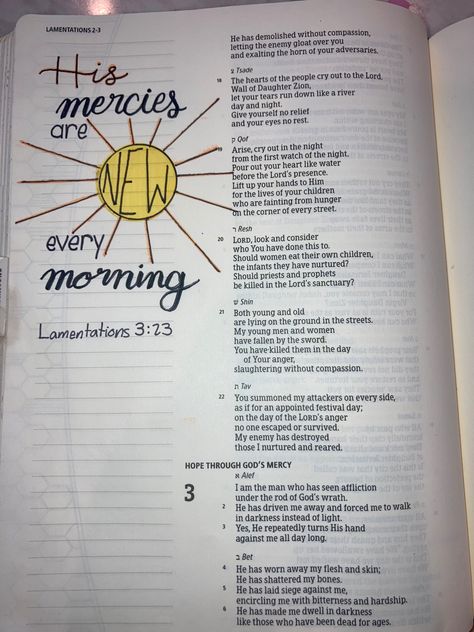 LAMENTATIONS 2-3
His
mercies
are
NEW
every
morning
Lamentations 3:23
He has demolished without compassion,
letting the enemy gloat over you
and exalting the horn of your adversaries.
צ Tsade
18 The hearts of the people cry out to the Lord.
Wall of Daughter Zion,
let your tears run down like a river
day and night.
Give yourself no relief
and your eyes no rest.
ק Qof
19 Arise, cry out in the night
from the first watch of the night.
Pour out your heart like water
before the Lord's presence.
Lift up your hands to Him
for the lives of your children
who are fainting from hunger
on the corner of every street.
ר Resh
20 LORD, look and consider
who You have done this to.
Should women eat their own children,
the infants they have nurtured?
Should priests and prophets
be killed in the Lord's sanctuary?
ש Shin
21 Both young and old
are lying on the ground in the streets.
My young men and women
have fallen by the sword.
You have killed them in the day
of Your anger,
slaughtering without compassion.
ת Tav
22 You summoned my attackers on every side,
as if for an appointed festival day;
on the day of the LORD's anger
no one escaped or survived.
My enemy has destroyed
those I nurtured and reared.
HOPE THROUGH GOD'S MERCY
א Alef
3 I am the man who has seen affliction
under the rod of God's wrath.
2 He has driven me away and forced me to walk
in darkness instead of light.
3 Yes, He repeatedly turns His hand
against me all day long.
ב Bet
4 He has worn away my flesh and skin;
He has shattered my bones.
5 He has laid siege against me,
encircling me with bitterness and hardship.
6 He has made me dwell in darkness
like those who have been dead for ages.